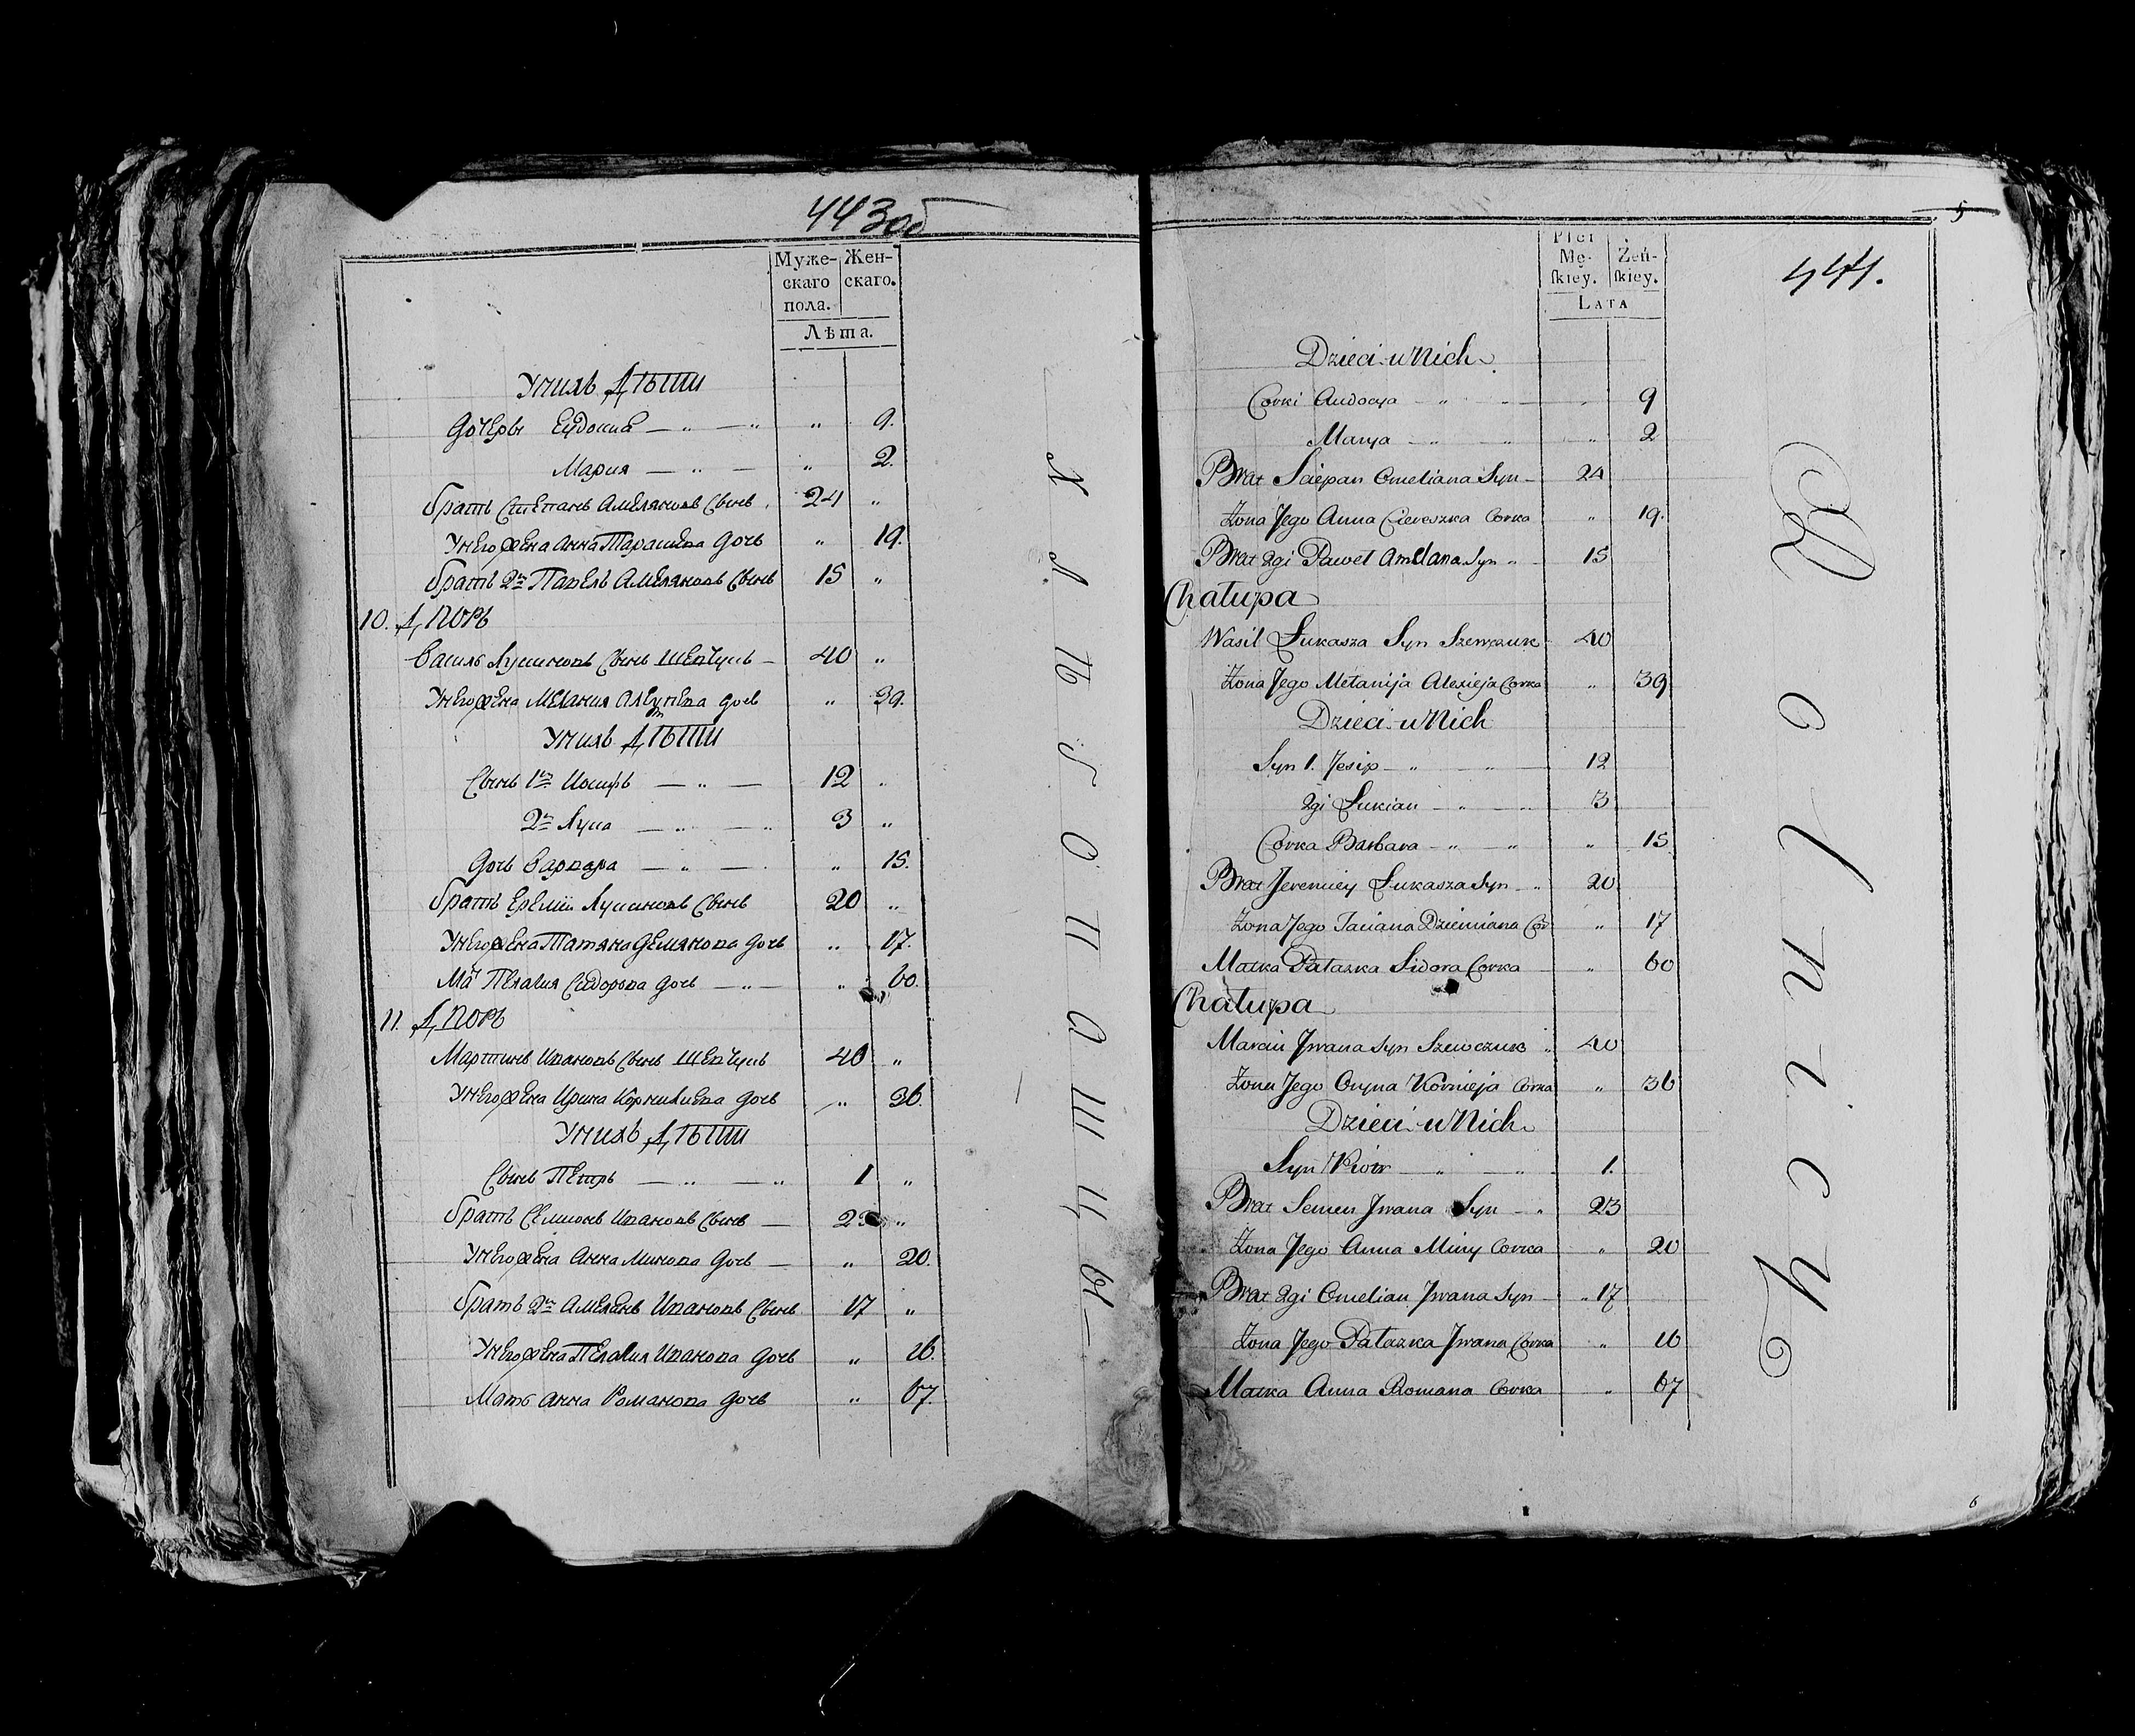 443об
Муже-
скаго
пола.
Жен-
скаго.
Лѣта.
У нихъ Дѣти
дочеры Евдокия — „ — „ „ 9.
Мария — „ — „ 2.
братъ Степанъ Амеляновъ Сынъ 24 „
У него жена Анна Тарасиева дочь „ 19.
братъ 2й Павелъ Амеляновъ Сынъ 15 „
10. Дворъ
Василь Лукиновъ Сынъ Шевчукъ — 40 „
У него жена Мелания дочь „ 39.
У нихъ Дѣти
Сынъ 1й Иосифъ — „ — 12 „
2й Лука — „ — „ 3 „
дочь Варвара — „ — „ 15.
братъ Еремий Лукиновъ Сынъ 20 „
У него жена Татяна Демянова дочь „ 17.
Пелагия Сидорова дочь — „ — „ 60.
11. Дворъ
Мартинъ Ивановъ Сынъ Шевчукъ 40 „
У него жена Ирина Корнилиева дочь „ 36.
У нихъ Дѣти
Сынъ Петръ — „ — „ 1 „
братъ Семионъ Ивановъ Сынъ — „
У него жена Анна Минова дочь — „ 20.
братъ 2й Амелянъ Ивановъ Сынъ 17 „
У него жена Пелагия Иванова дочь „ 16.
Мать Анна Романова дочь „ 67.
Хлѣбопашцы
5
444.
Płci
Mę-
ſkiey.
Żeń-
ſkiey.
LATA
Dzieci u Nich
Corki Audocya — „ — „ 9
Marya — „ „ „ 2
Brat Sciepan Omeliana Syn — 24
Żona Jego Anna Ciereszka Corka „ 19.
Brat 2gi Paweł Ameliana Syn „ 15
Chałupa
Wasil Łukasza Syn Szewczuk 40
Żona Jego Mełanija Alexieja Corka „ 39
Dzieci u Nich
Syn 1. Jesip — „ „ 12
2gi Łukian — „ — „ 3
Corka Barbara — „ — „ „ 15
Brat Jeremiey Łukasza Syn — „ 20
Żona Jego Taciana Dziemiana Cor „ 17
Matka Pałazka Sidora Corka „ 60
Chałupa
Marcin Jwana Syn Szewczuk „ 40
Żona Jego Oryna Kornieja Corka „ 36
Dzieci u Nich
Syn Piotr — „ — „ 1.
Brat Semen Jwana Syn — „ 23
Żona Jego Anna Miny Corka „ 20
Brat 2gi Omelian Jwana Syn „ 17
Żona Jego Pałazka Jwana Corka „ 16
Matka Anna Romana Corka „ 67
Rolnicy
6